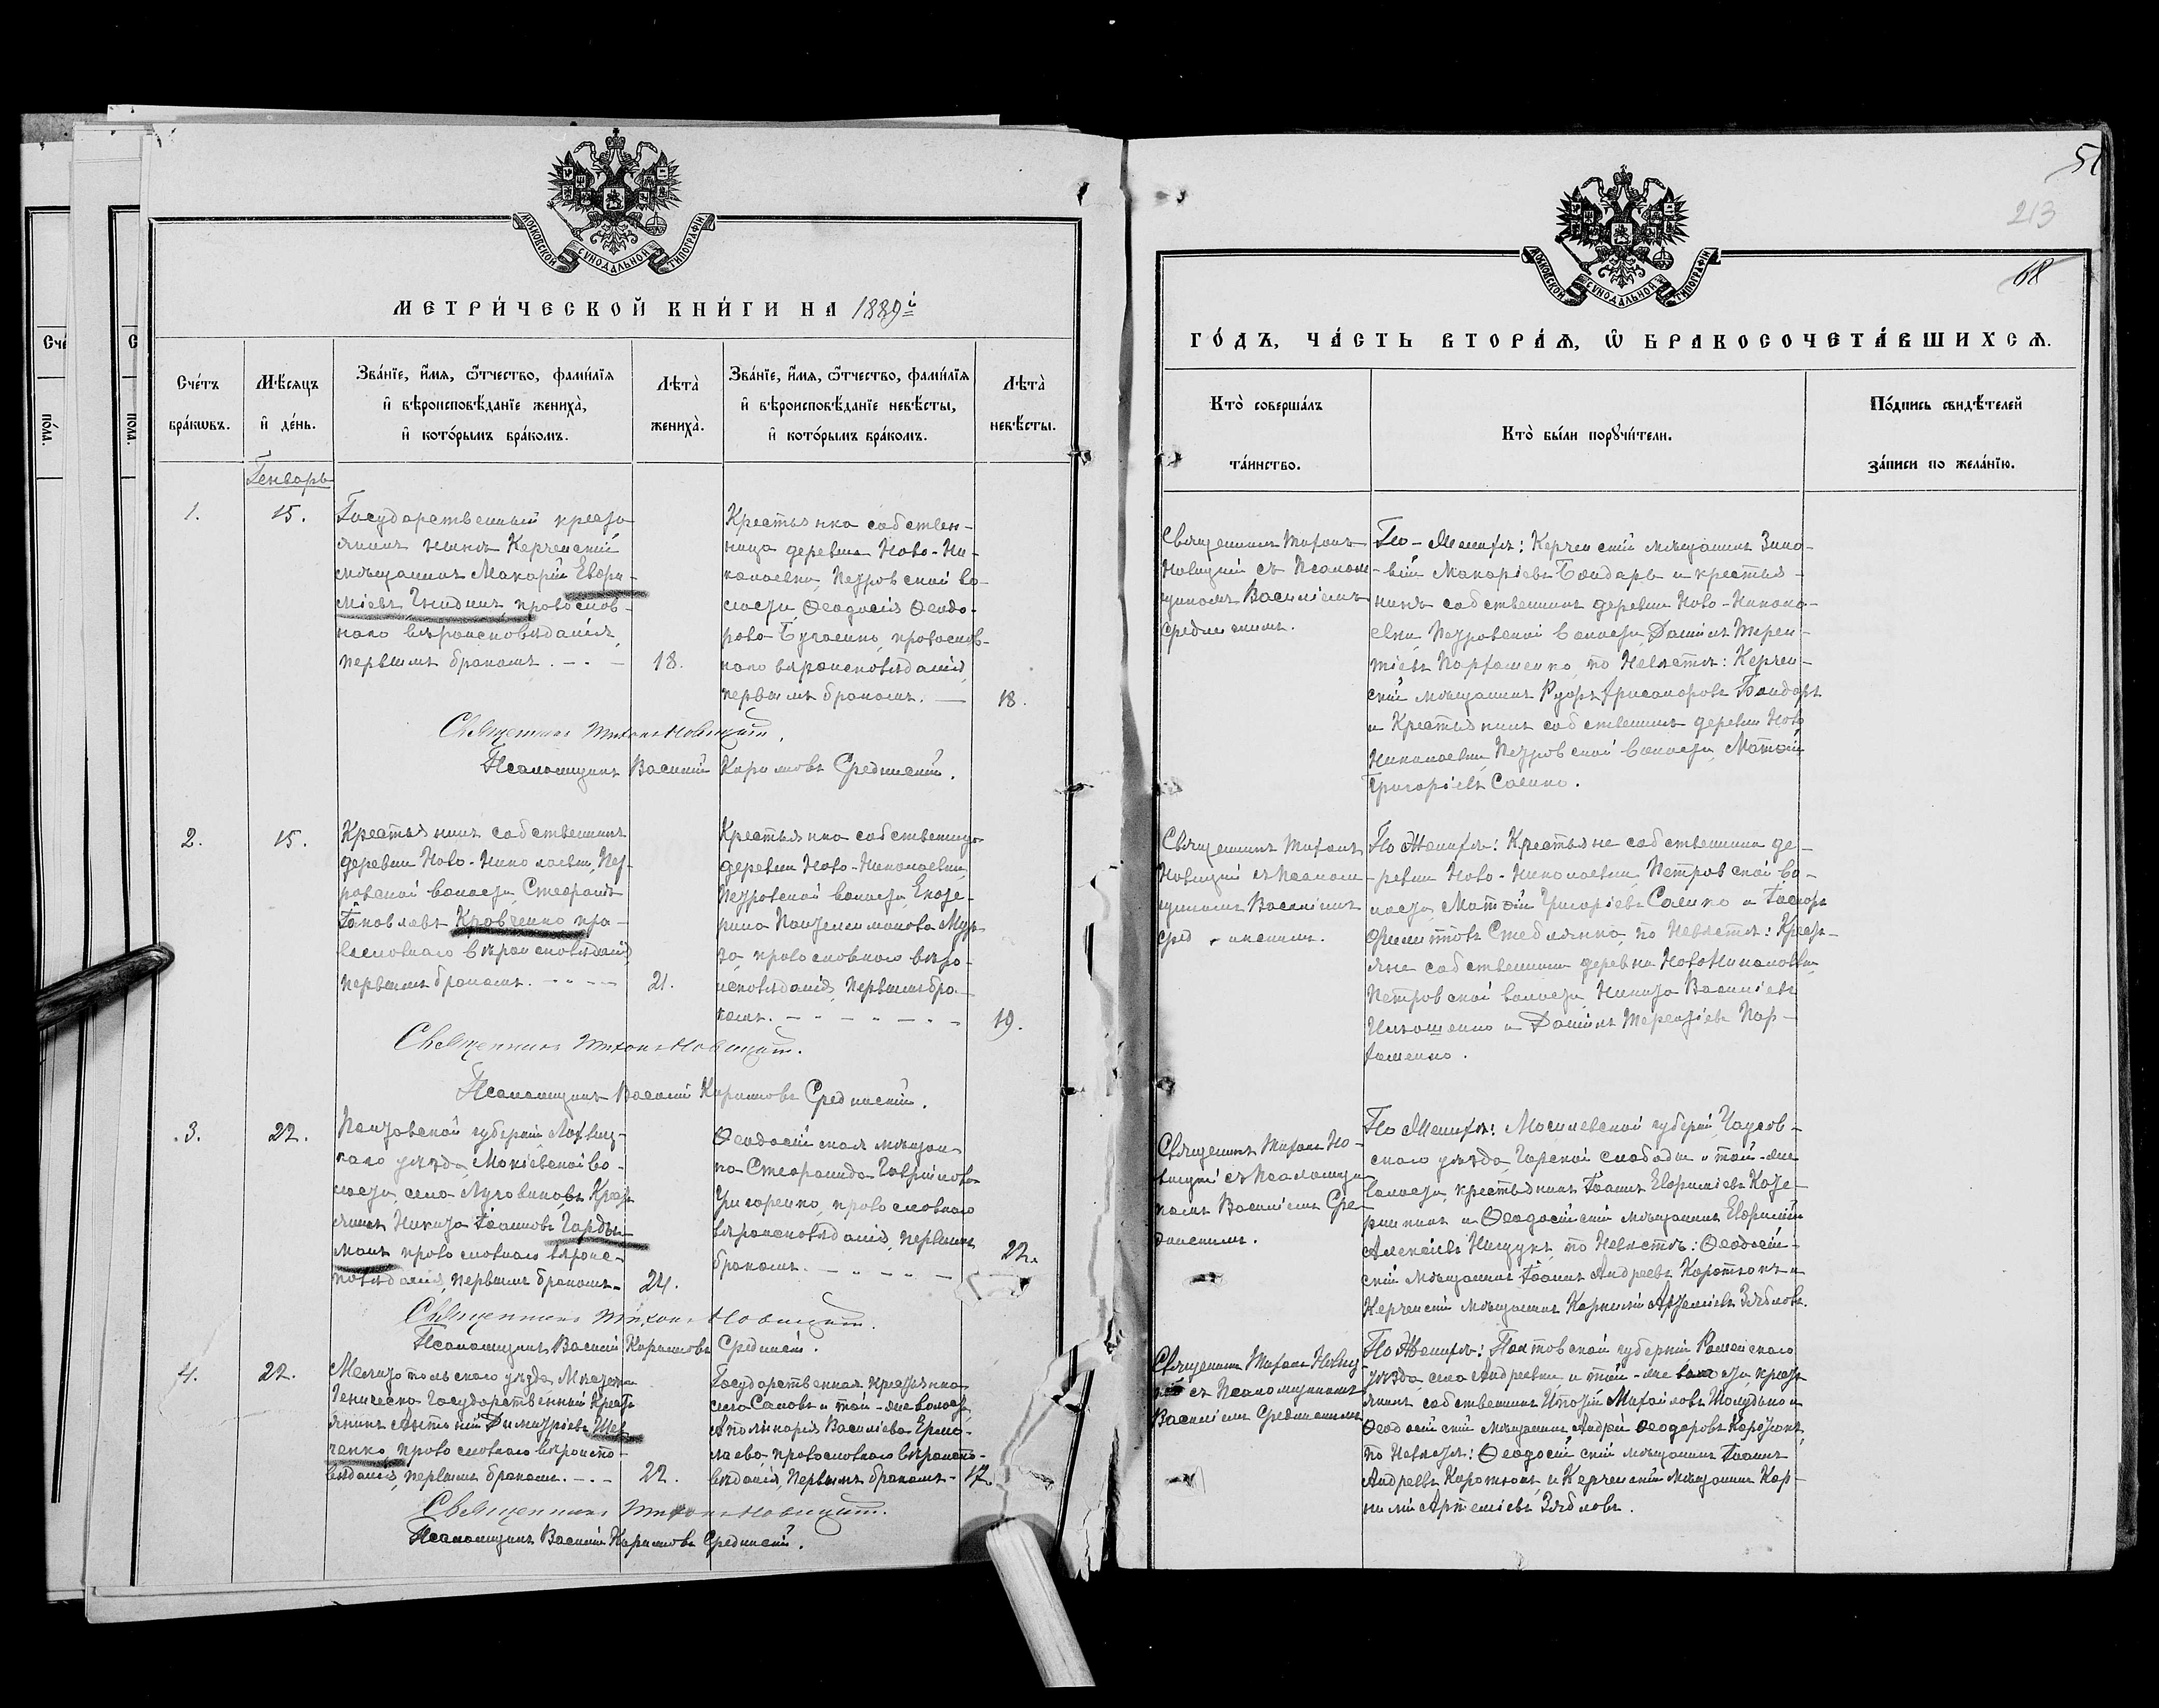 МОСКОВСКОЙ СѴНОДАЛЬНОЙ ТИПОГРАФІИ
МЕТРИ́ЧЕСКОЙ КНИ́ГИ НА 1889й
Сче́тъ бра́кѡвъ.
Мѣ́сяцъ и҆ де́нь.
Зва́нїе, и҆́мѧ, ѻ҆́тчество, фамѝлїѧ
и҆ вѣроисповѣ́данїе жениха̀,
и҆ кото́рымъ бра́комъ.
Лѣта̀ жениха̀.
Зва́нїе, и҆́мѧ, ѻ҆́тчество, фамѝлїѧ
и҆ вѣроисповѣ́данїе невѣ́сты,
и҆ кото́рымъ бра́комъ.
Лѣта̀ невѣ́сты.
Генварь
1.
15.
Государственный кресть
янинъ нынѣ Керченскій
мѣщанинъ Макарій Евѳи-
міевъ Гнидинъ православ-
наго вѣроисповѣданія,
первымъ бракомъ.
18.
Крестьянка собствен-
ница деревни Ново-Ни-
колаевки, Петровской во-
лости, Ѳеодосія Ѳеодо-
рова православ-
наго вѣроисповѣданія,
первымъ бракомъ.
18.
Священникъ Тихонъ Новицкій.
Псаломщикъ Василій Кириловъ Срединскій.
2.
15.
Крестьянинъ собственникъ
деревни Ново-Николаевки, Пет-
ровской волости, Стефанъ
Іаковлевъ Кравченко пра-
вославнаго вѣроисповѣданія,
первымъ бракомъ.
21.
Крестьянка собственница
деревни Ново-Николаевки,
Петровской волости, Екате-
рина Пантелеимонова
православнаго вѣро-
исповѣданія, первымъ бра-
комъ.
19.
Священникъ Тихонъ Новицкій.
Псаломщикъ Василій Кириловъ Срединскій.
3.
22.
Полтавской губерніи Лохвиц-
каго уѣзда, во-
лости, села Луговиковъ, Крест
янинъ Никита Іоанновъ Горды-
манъ православнаго вѣроис-
повѣданія, первымъ бракомъ.
24.
Ѳеодосійская мѣщан-
ка Стефанида Гавріилова
Григоренко, православнаго
вѣроисповѣданія, первымъ
бракомъ.
22.
Священникъ Тихонъ Новицкій.
Псаломщикъ Василій Кириловъ Срединскій.
4.
22.
Мелитопольскаго уѣзда, Мѣстечка
Геническа Государственный Крест
янинъ Антоній Димитріевъ Шев
ченко, православнаго вѣроиспо-
вѣданія, первымъ бракомъ.
22.
Государственная крестьянка
села и той-же волости,
Аполинарія Васильева Ермо-
лаева православнаго вѣроиспо-
вѣданія, первымъ бракомъ.
17.
Священникъ Тихонъ Новицкій.
Псаломщикъ Василій Кириловъ Срединскій.
213
68
МОСКОВСКОЙ СѴНОДАЛЬНОЙ ТИПОГРАФІИ
ГО́ДЪ, ЧА́СТЬ ВТОРА́Ѧ, Ѡ҆ БРАКОСОЧЕТА́ВШИХСѦ.
Кто̀ соверша́лъ та́инство.
Кто̀ бы́ли порꙋчи́тели.
По́дпись свидѣ́телей за́писи по жела́нїю.
Священникъ Тихонъ
Новицкій съ Псалом-
щикомъ Василіемъ
Срединскимъ.
По Женихѣ: Керченскій мѣщанинъ Зино-
вій Макаріевъ Бондарь и крестья-
нинъ собственникъ деревни Ново-Никола-
евки, Петровской волости, Даніилъ Терен-
тіевъ Пархоменко, по Невѣстѣ: Керчен-
скій мѣщанинъ Бондарь
и Крестьянинъ собственникъ деревни Ново
Николаевки, Петровской волости, Матѳій
Григоріевъ Саенко.
Священникъ Тихонъ
Новицкій съ Псалом-
щикомъ Василіемъ
Срединскимъ.
По Женихѣ: Крестьяне собственники де-
ревни Ново-Николаевки, Петровской во-
лости, Матѳій Григоріевъ Саенко и
по Невѣстѣ: Крест-
яне собственники деревни Ново Николаевки,
Петровской волости, Никита Василіевъ
и Даніилъ Терентіевъ Пар-
хоменко.
Священникъ Тихонъ Но-
вицкій съ Псаломщи-
комъ Василіемъ Сре-
динскимъ.
По Женихѣ: Могилевской губерніи, Чаусов-
скаго уѣзда, Горской слободы и той-же
волости, крестьянинъ Іоаннъ Евѳиміевъ
и Ѳеодосійскій мѣщанинъ Евѳимій
Алексіевъ Нищукъ, по Невѣстѣ: Ѳеодосій-
скій мѣщанинъ Іоаннъ Андреевъ Коротюкъ и
Керченскій мѣщанинъ Корнилій Артеміевъ Зябловъ.
Священникъ Тихонъ Новиц
кій съ Псаломщикомъ
Василіемъ Срединскимъ
По Женихѣ: Полтавской губерніи Роменскаго
уѣзда, села Андреевки и той-же волости, крест
янинъ собственникъ Михаиловъ и
Ѳеодосійскій мѣщанинъ Андрей Ѳеодоровъ
по Невѣстѣ: Ѳеодосійскій мѣщанинъ Іоаннъ
Андреевъ Коротюкъ, и Керченскій мѣщанинъ Кор-
нилій Артеміевъ Зябловъ.